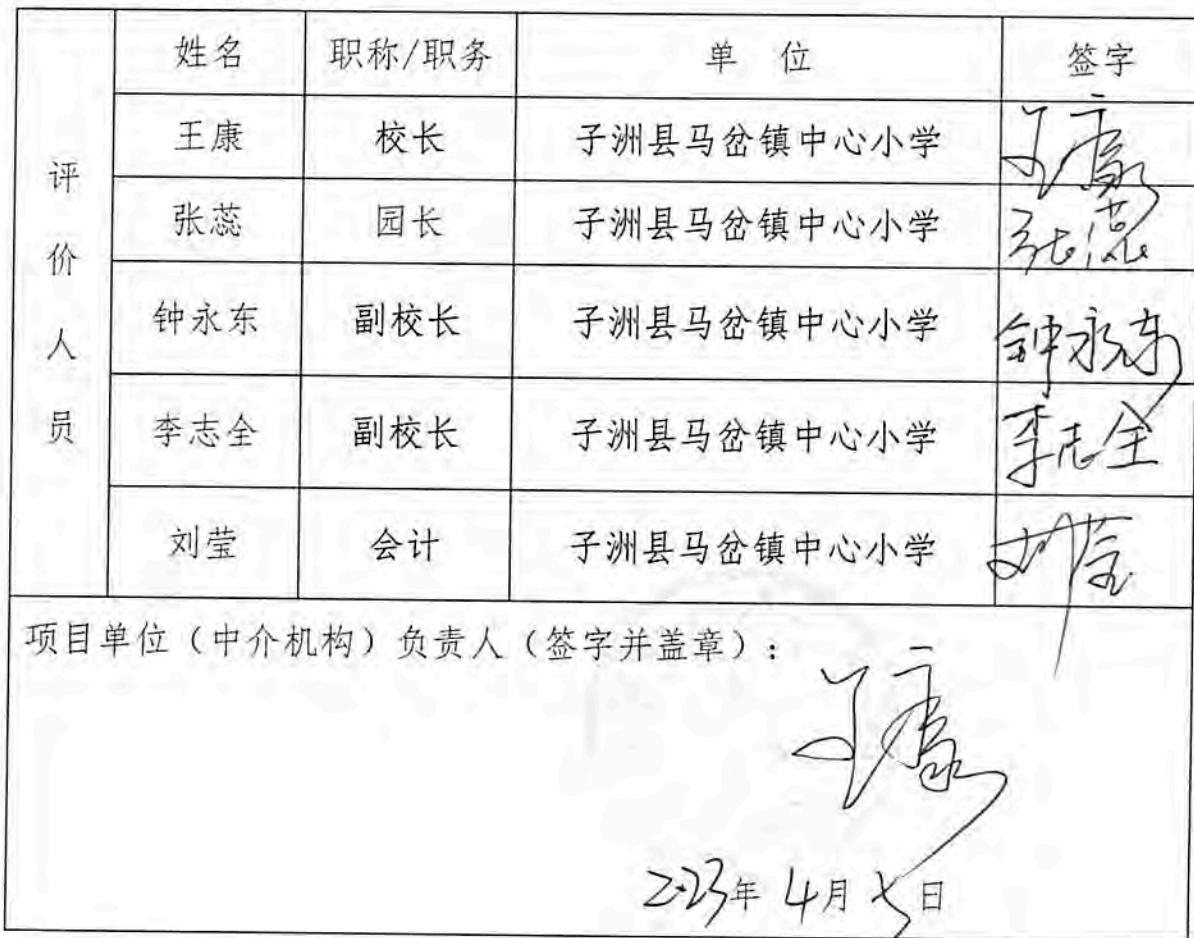 姓名 职称/职务 单 位 签字
评价人员
王康 校长 子洲县马岔镇中心小学 王康
张蕊 园长 子洲县马岔镇中心小学 张蕊
钟永东 副校长 子洲县马岔镇中心小学 钟永东
李志全 副校长 子洲县马岔镇中心小学 李志全
刘莹 会计 子洲县马岔镇中心小学 刘莹
项目单位（中介机构）负责人（签字并盖章）：
王康
2023年4月七日